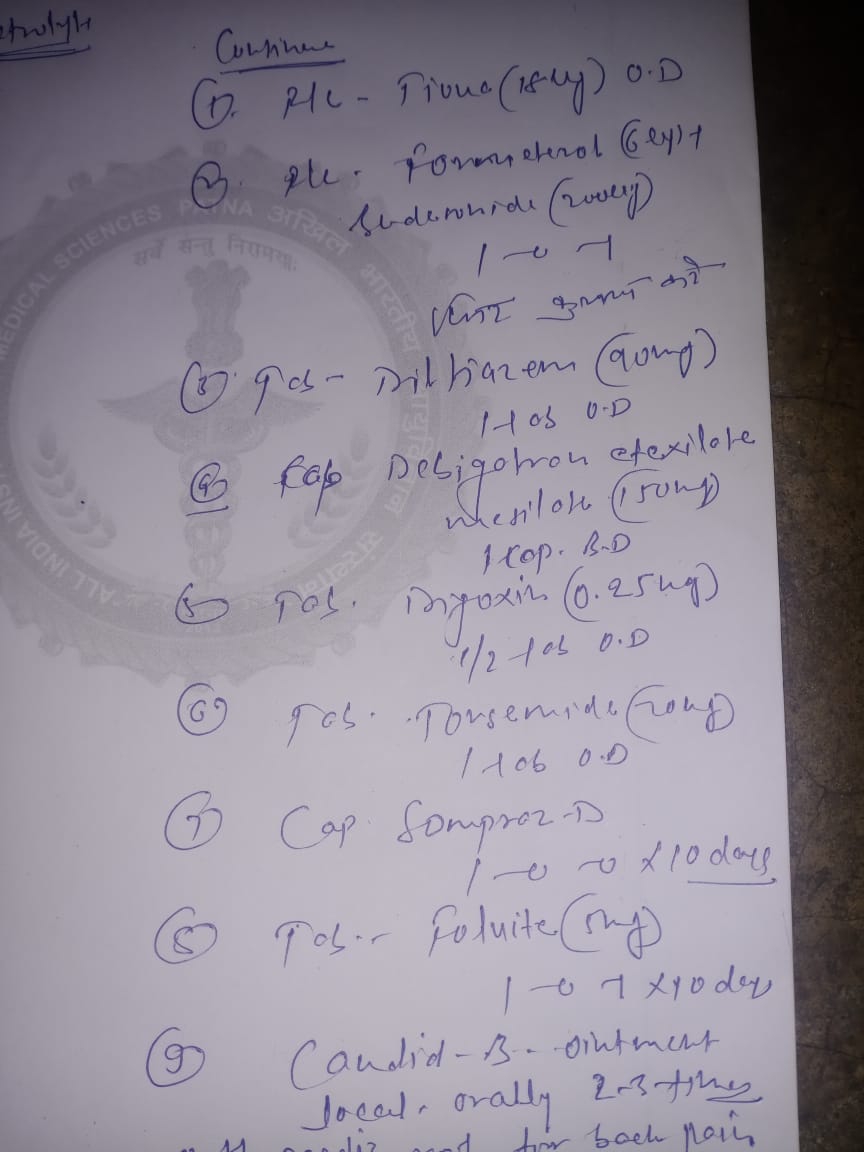 Continue
①. R/c - Tiova (18ug) O.D
②. R/c - Formeterol (6ug) +
Budesonide (200ug)
1-0-1
करें
③. Tab - Diltiazem (90mg)
1 tab O.D
④ Cap Debigatron etexilate
mesilate (150mg)
1 cap. B.D
⑤ Tab. Digoxin (0.25mg)
1/2 tab O.D
⑥ Tab. Torsemide (20mg)
1 tab O.D
⑦ Cap. Sompraz-D
1-0-0 x 10 days
⑧ Tab. Foluite (5mg)
1-0-1 x 10 days
⑨ Candid-B ointment
local. orally 2-3 times
for back pain
ALL INDIA INS
MEDICAL SCIENCES PATNA
सर्वे सन्तु निरामयाः
अखिल भारतीय आयुर्विज्ञान संस्थान